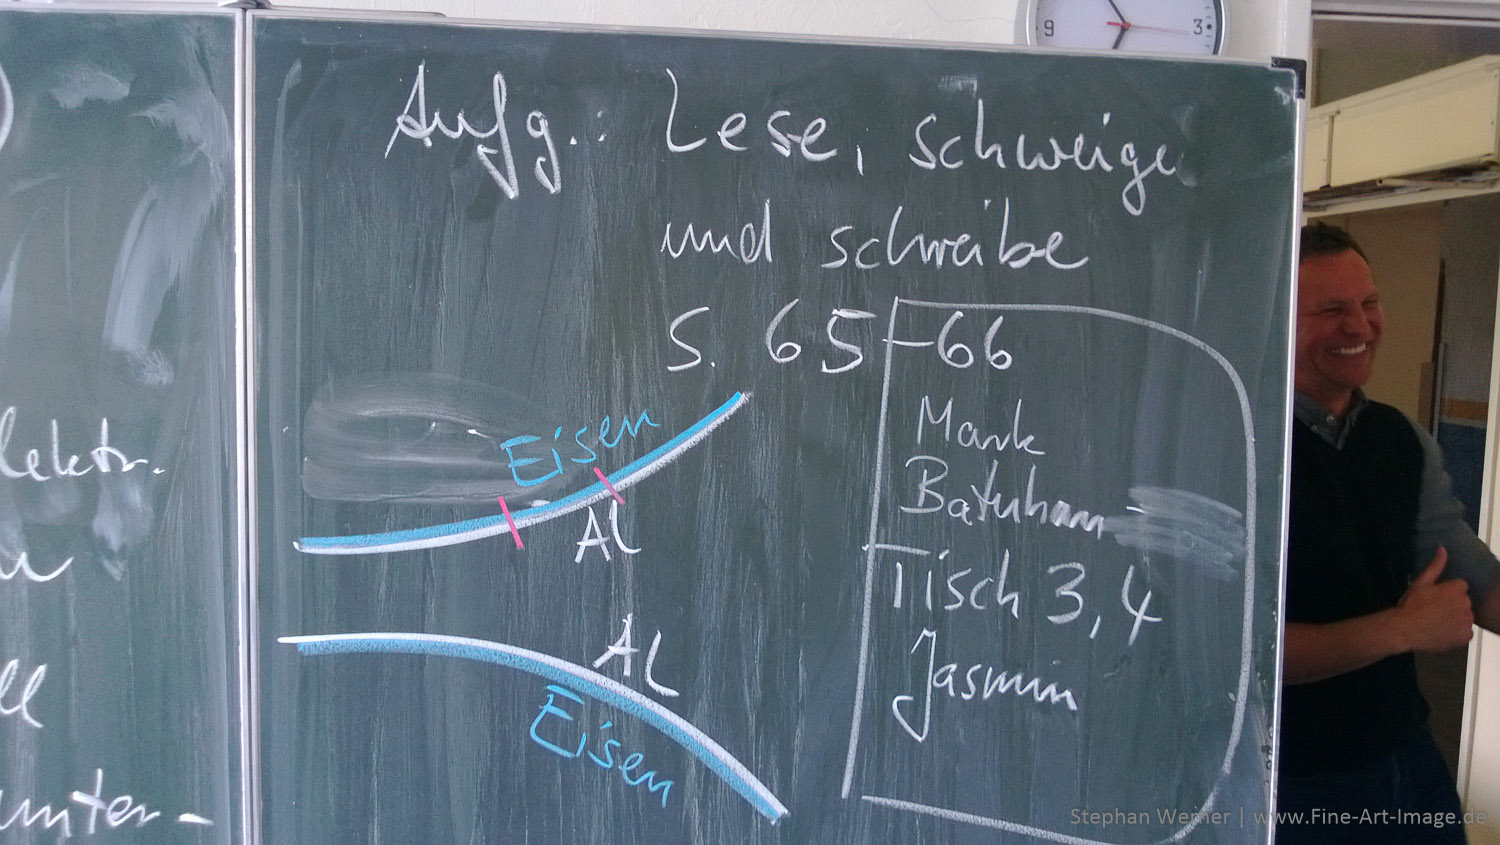 9 3
Aufg.: Lese, schweige
und schreibe
S. 65-66
Mark
Batuhan
Tisch 3, 4
Jasmin
Eisen
AL
AL
Eisen
lektr.
ll
unter-
Stephan Werner | www.Fine-Art-Image.de